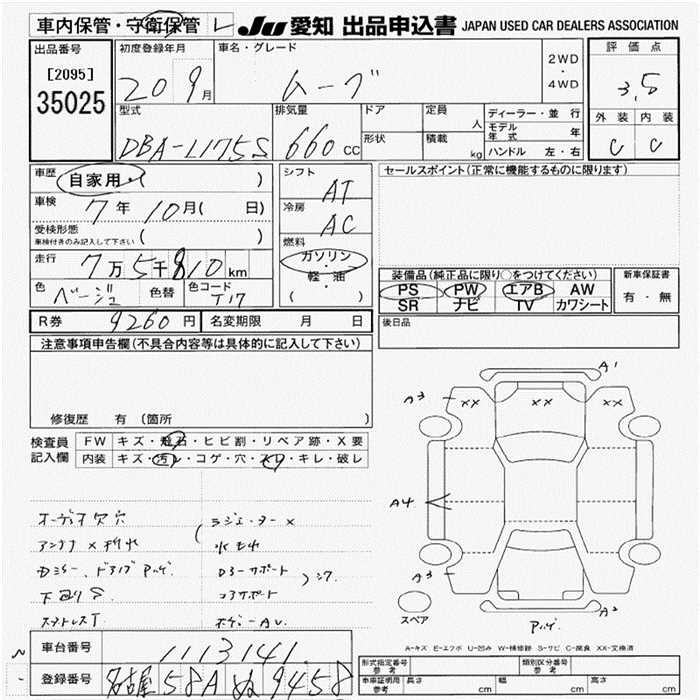 車内保管・守衛保管 レ JU 愛知 出品申込書 JAPAN USED CAR DEALERS ASSOCIATION
出品番号 初度登録年月 車名・グレード 2WD ・ 4WD 評価点
[2095] 20 9月 ムーヴ 3.5
35025
型式 排気量 ドア 定員 人 ディーラー・並行 外装 内装
DBA-L175S 660cc 形状 積載 kg モデル年式 年 C C
ハンドル 左・右
車歴 自家用・( ) シフト AT セールスポイント(正常に機能するものに限ります)
車検 7年10月( 日) 冷房 AC
受検形態 ( )
車検付きのみ記入して下さい
燃料
走行 7万5千810km ガソリン・軽・油 ( ) 装備品(純正品に限り○をつけてください) 新車保証書
色 ベージュ 色替 色コード T17 PS PW エアB AW 有・無
SR ナビ TV カワシート
R券 9260円 名変期限 月 日 後日品
注意事項申告欄(不具合内容等は具体的に記入して下さい)
修復歴 有 (箇所 )
検査員記入欄 FW キズ・飛石・ヒビ割・リペア跡・X要
内装 キズ・汚レ・コゲ・穴・スレ・キレ・破レ
A1
A3 XX XX XX
A4
A3 A2
スペア
オーディオ欠穴
アンテナ×折れ 水もれ
下廻りS コアサポート
A-キズ E-エクボ U-凹み W-補修跡 S-サビ C-腐食 XX-交換済
車台番号 1113141
登録番号 名古屋 58A ぬ 9458
形式指定番号 参考 類別区分番号 参考
車庫証明用 参考 長さ cm 幅 cm 高さ cm